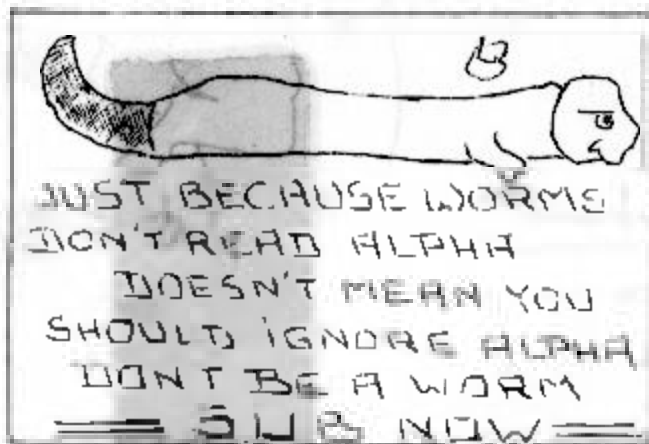 JUST BECAUSE WORMS
DON'T READ ALPHA
DOESN'T MEAN YOU
SHOULD IGNORE ALPHA
DONT BE A WORM
SUB NOW